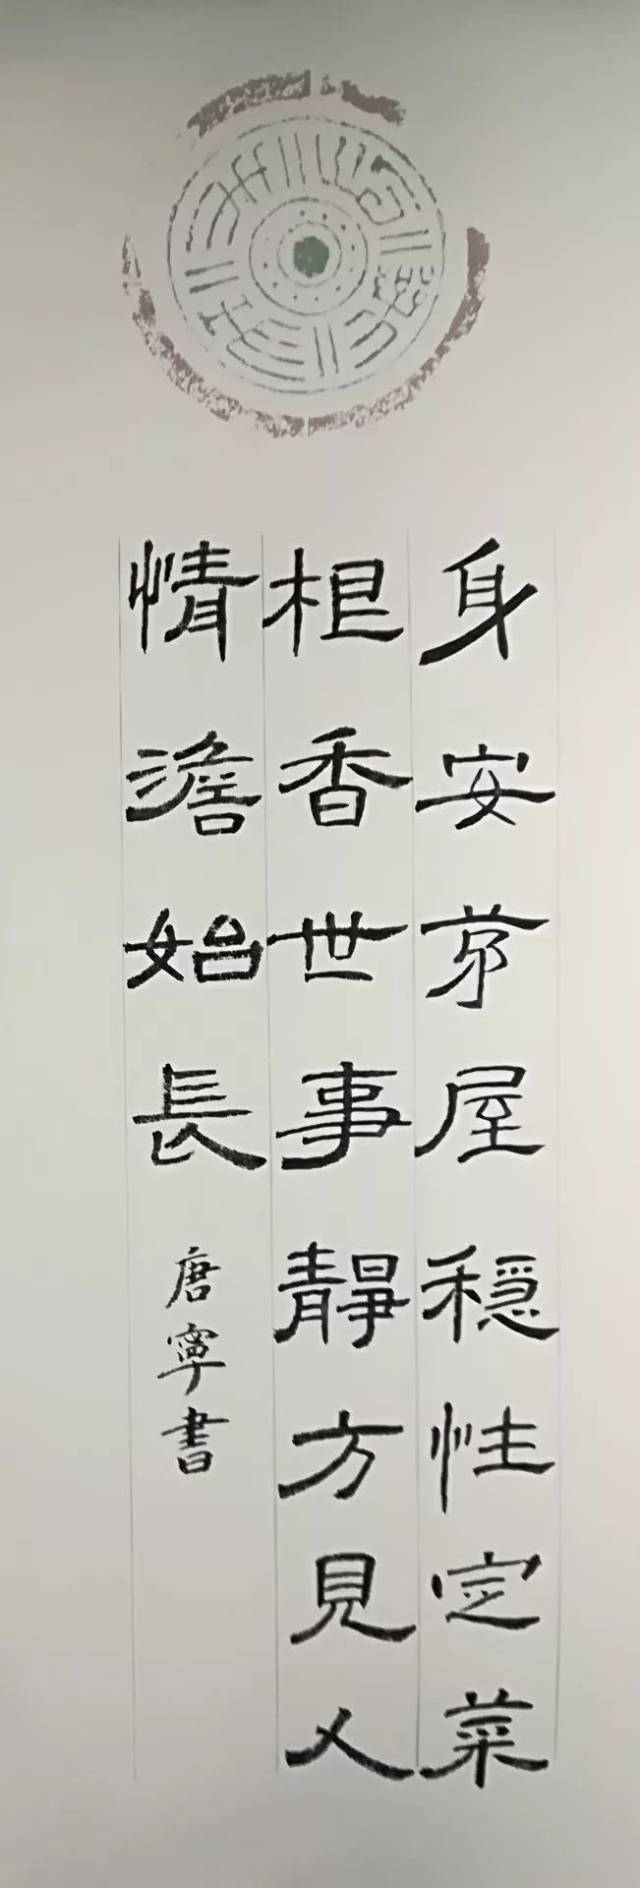 身安茅屋穩性定菜
根香世事靜方見人
情澹始長
唐寧書